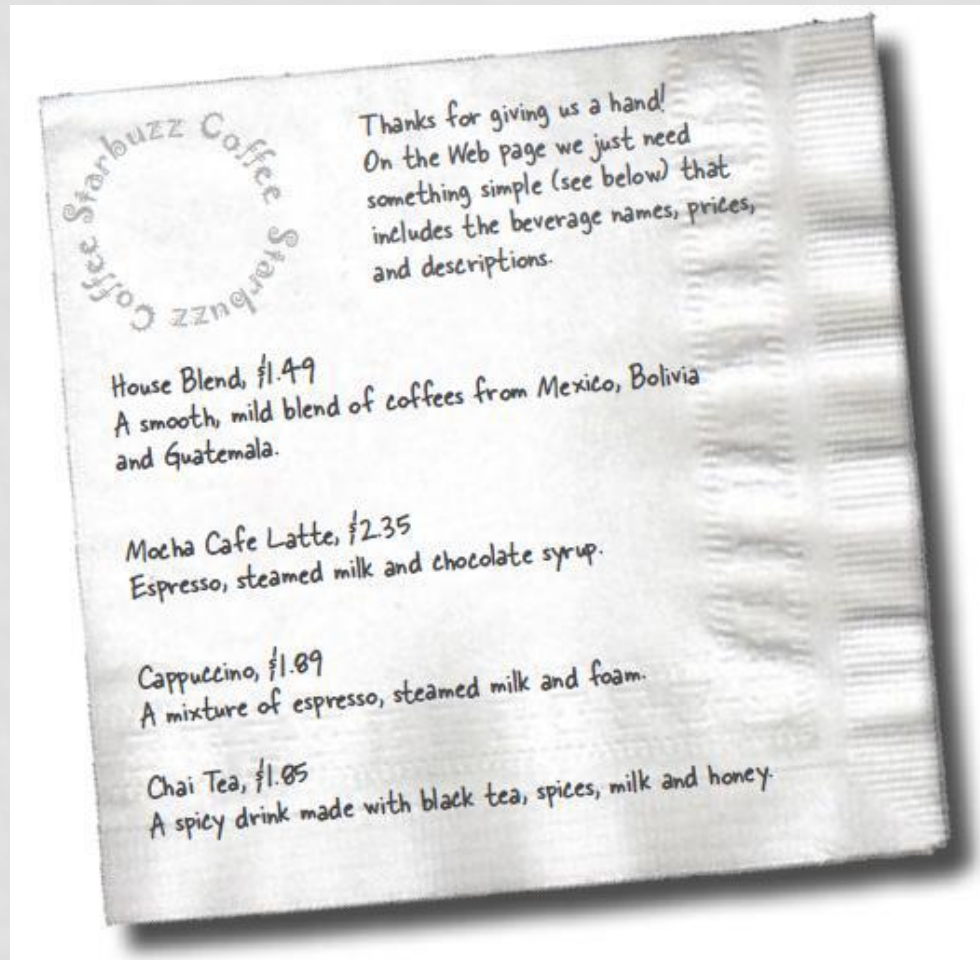 Starbuzz Coffee Starbuzz Coffee
Thanks for giving us a hand!
On the Web page we just need
something simple (see below) that
includes the beverage names, prices,
and descriptions.
House Blend, $1.49
A smooth, mild blend of coffees from Mexico, Bolivia
and Guatemala.
Mocha Cafe Latte, $2.35
Espresso, steamed milk and chocolate syrup.
Cappuccino, $1.89
A mixture of espresso, steamed milk and foam.
Chai Tea, $1.85
A spicy drink made with black tea, spices, milk and honey.